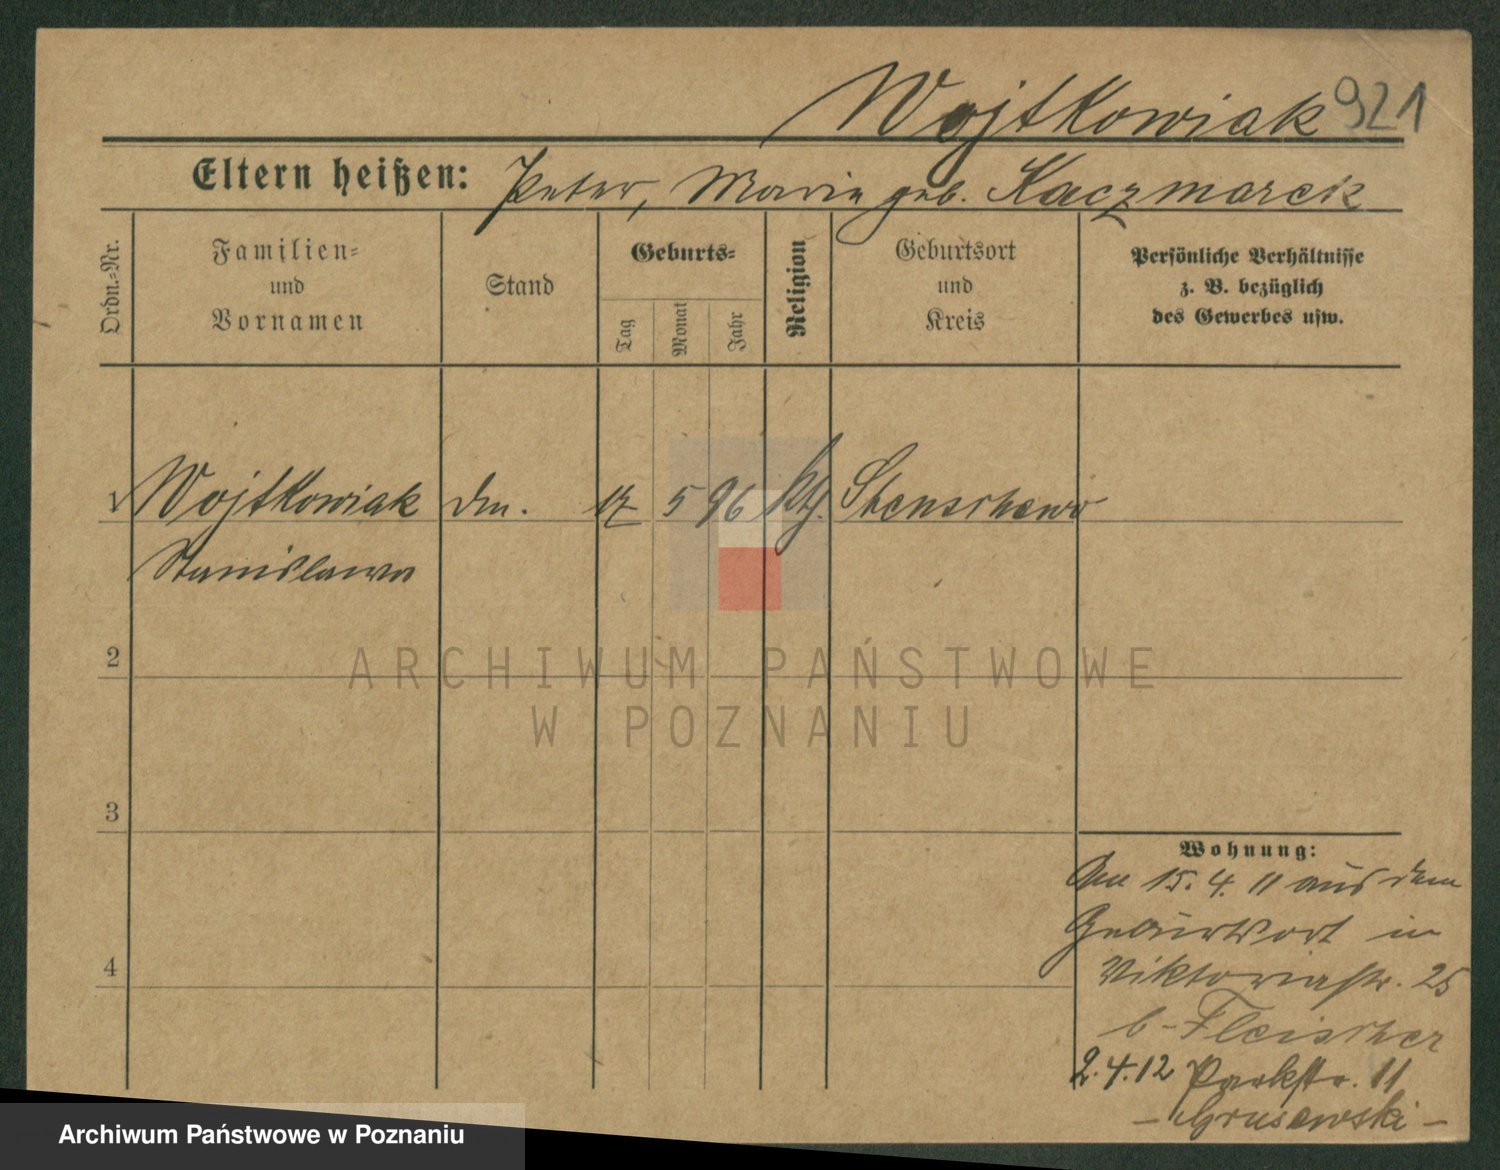 Wojtkowiak 921
Eltern heißen: Peter, Marie geb. Kaczmarek
Ordn.-Nr.
Familien-
und
Vornamen
Stand
Geburts-
Tag
Monat
Jahr
Religion
Geburtsort
und
Kreis
Persönliche Verhältnisse
z. B. bezüglich
des Gewerbes usw.
1 Wojtkowiak 5 96 kth. Stenschewo
Stanislawa
2
ARCHIWUM PAŃSTWOWE
W POZNANIU
3
4
Wohnung:
Am 15. 4. 11 aus dem
Geburtsort in
Viktoriastr. 25
b - Fleischer
2. 4. 12 Parkstr. 11
- Grusewski -
Archiwum Państwowe w Poznaniu